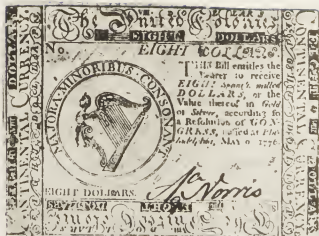 The United Colonies
EIGHT DOLLARS
No. EIGHT DOLLARS
THIS Bill entitles the
Bearer to receive
EIGHT Spanish milled
DOLLARS, or the
Value thereof in Gold
or Silver, according to
a Resolution of CON-
GRESS, passed at Phi-
ladelphia, May 9, 1776.
MAJORA MINORIBUS CONSONANT
EIGHT DOLLARS.
Norris
CONTINENTAL CURRENCY
CONTINENTAL CURRENCY
DOLLARS